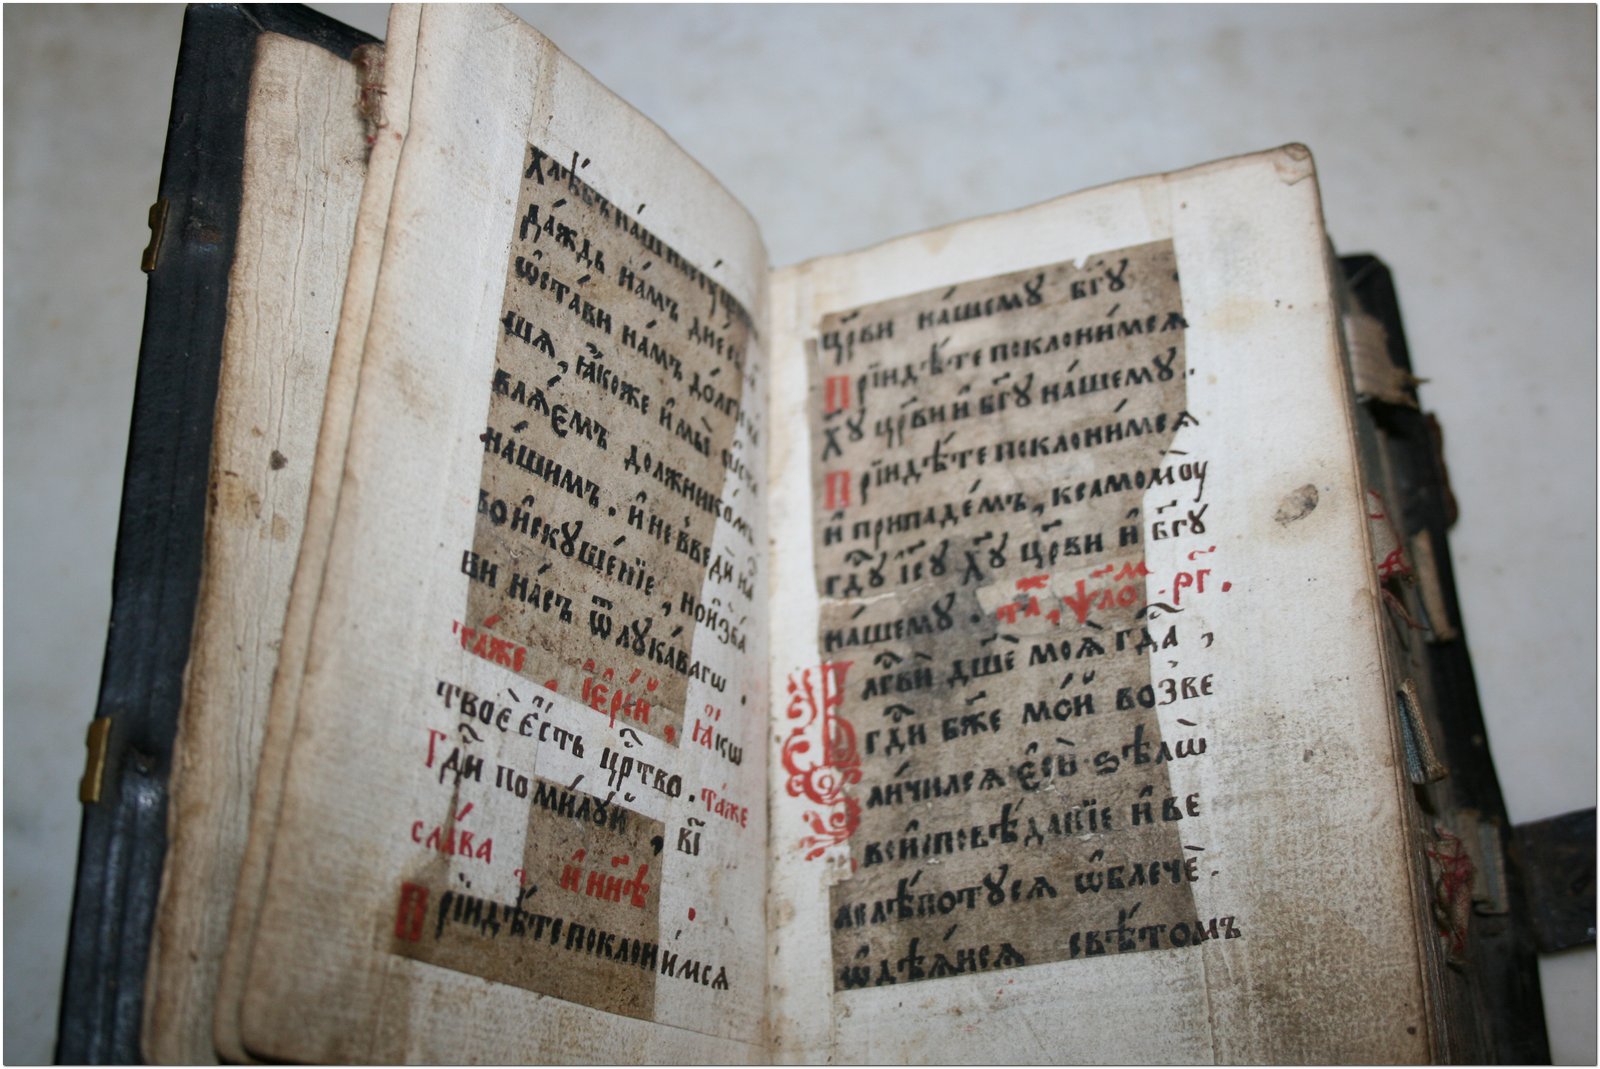 хлѣ́бъ на́шъ насꙋ́щныи
да́ждь на́мъ дне́сь
ѡ҆ста́ви на́мъ до́лги на
шѧ, ꙗ҆́коже и҆ мы̀ ѡ҆ста
влѧ́емъ должнико́мъ
на́шимъ. и҆ не введѝ на́
во и҆скꙋше́нїе, но и҆зба
ви на́съ ѿ лꙋка́вагѡ.
та́же і҆ере́й, ꙗ҆́кѡ
твоѐ є҆́сть цр҃тво. та́же
Гдⷭ҇и поми́лꙋй, в҃і
сла́ва и҆ нн҃ѣ.
Прїидѣ́те поклони́мсѧ
цр҃ви на́шемꙋ бг҃ꙋ
Прїидѣ́те поклони́мсѧ
хꙋ҃ цр҃ви и҆ бг҃ꙋ на́шемꙋ.
Прїидѣ́те поклони́мсѧ
и҆ припаде́мъ, к самомꙋ̀
гдⷭ҇ꙋ і҆с҃ꙋ хꙋ҃ цр҃ви и҆ бг҃ꙋ
на́шемꙋ. ѱало́м. рг҃.
Бл҃гвѝ дш҃е моѧ̀ гдⷭ҇а,
гдⷭ҇и бж҃е мо́й возве
ли́чилсѧ є҆сѝ ѕѣлѡ̀
во и҆сповѣ́данїе и҆ ве
лелѣ́потꙋсѧ ѡ҆блечѐ.
ѡ҆дѣ́ѧйсѧ свѣ́томъ